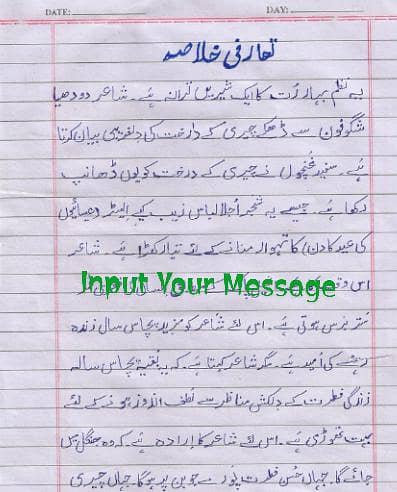 DATE: DAY:
تعارفی خلاصہ
یہ نظم بہار رُت کا ایک شیریں ترانہ ہے۔ شاعر دودھیا
شگوفوں سے ڈھکے چیری کے درخت کی دلفریبی بیان کرتا
ہے۔ سفید غنچوں نے چیری کے درخت کو یوں ڈھانپ
رکھا ہے۔ جیسے یہ شجر اُجلا لباس زیب کیے ایسٹر (عیسائیوں
کی عید کا دن) کا تہوار منانے کے لئے تیار کھڑا ہے۔ شاعر
اس وقت
Input Your Message
ستر برس ہوتی ہے۔ اس لئے شاعر کو مزید پچاس سال زندہ
رہنے کی اُمید ہے۔ مگر شاعر کہتا ہے۔ کہ یہ بقیہ پچاس سالہ
زندگی فطرت کے دلکش مناظر سے لطف اندوز ہونے کے لئے
بہت تھوڑی ہے۔ اس لئے شاعر کا ارادہ ہے۔ کہ وہ جنگل میں
جائے گا۔ جہاں حُسن فطرت پورے جوبن پر ہو گا۔ جہاں چیری